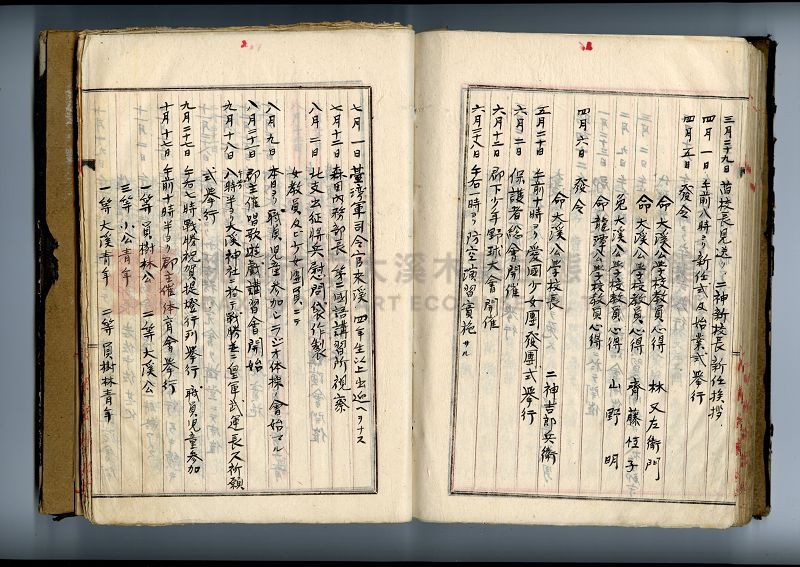 三月二十九日 舊校長見送リ 二神新校長新任挨拶
四月一日 午前八時ヨリ新任式及始業式擧行
四月五日 發令
命 大溪公學校教員心得 林又左衛門
命 大溪公學校教員心得 齊藤恒子
免 大溪公學校教員心得 山野明
命 龍潭公學校教員心得
四月六日 發令
命 大溪公學校長 二神吉郎兵衛
五月二十日 午前十時ヨリ愛國少女團發團式擧行
六月二日 保護者總會開催
六月十二日 郡下少年野球大會開催
六月二十八日 午后一時ヨリ防空演習實施サル
七月一日 臺灣軍司令官來溪 四年生以上出迎ヘヲナス
七月十二日 森田内務部長 第二國語講習所視察
八月二日 北支出征將兵慰問袋作製
女教員及ビ少女團員ニテ
八月九日 本日ヨリ職員児童参加シラジオ体操ノ會始マル
八月二十一日 郡主催唱歌遊戯講習會開始
九月十八日 八時半ヨリ大溪神社ニ於テ戰勝並ニ皇軍武運長久祈願
式擧行
九月二十七日 午后七時戰勝祝賀提燈行列擧行 職員児童参加
十月十七日 午前十時半ヨリ郡主催体育會擧行
一等 員樹林公 二等 大溪公
三等 小公青年
一等 大溪青年 二等 員樹林青年
大溪木
ART ECO